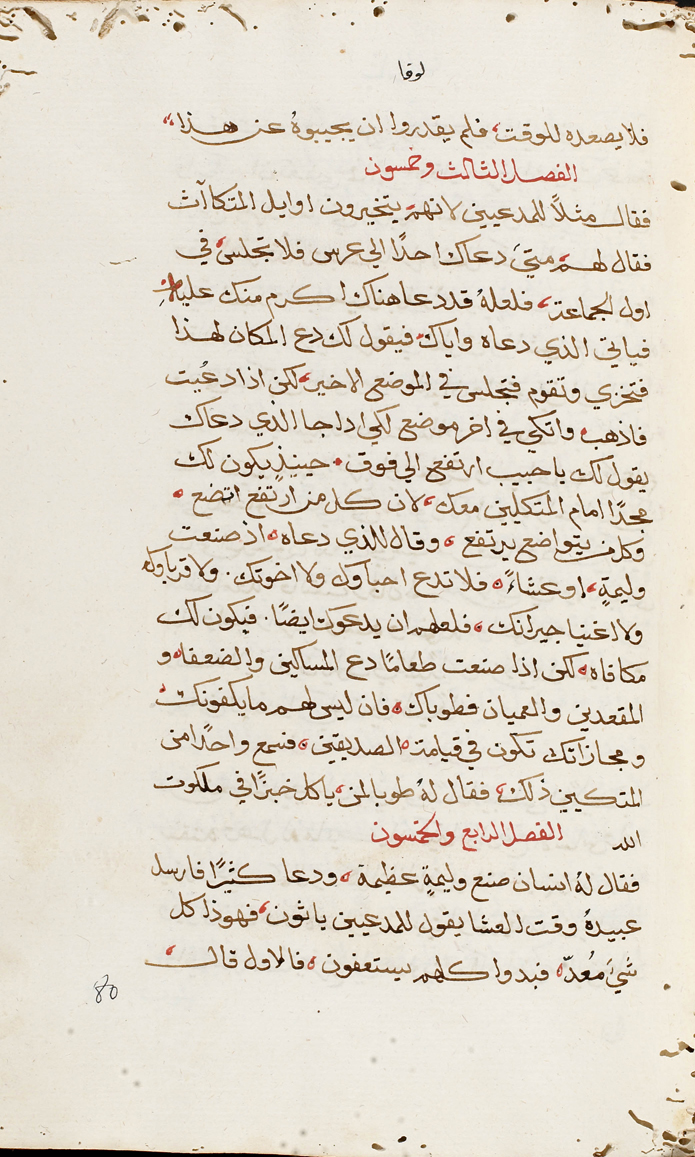 لوقا
فلا يصعده للوقت، فلم يقدروا ان يجيبوهُ عن هذا
الفصل الثالث وخمسون
فقال مثلاً للمدعيين لانهم يتخيرون اوايل المتكاآت
فقال لهم، متيَ دعاك احدًا الي عرس فلا تجلس في
اول الجماعة، فلعلهُ قد دعا هناك اكرم منك عليه
فياتي الذي دعاه واياك فيقول لك دع المكان لهذا
فتخزي وتقوم فتجلس في الموضع الاخير، لكن اذا دعُيت
فاذهب واتكي في اخر موضع لكي اذا جا الذي دعاك
يقول لك يا حبيب ارتفع الي فوق. حينيذٍ يكون لك
مجدًا امام المتكلين معك، لان كل من ارتفع اتضع
وكلمن يتواضع يرتفع، وقال للذي دعاه، اذ صنعت
وليمةٍ، او عشاءً، فلا تدع احباوك ولا اخوتك. ولا قرباوك
ولا اغنيا جيرانك، فلعلهم ان يدعوك ايضًا. فيكون لك
مكافاه، لكن اذا صنعت طعامًا دع المساكين والضعفا، و
المقعدين والعميان فطوباك، فان ليس لهم ما يكفونك
ومجازاتك تكون في قيامة الصديقين، فسمع واحدًا من
المتكيين ذلك، فقال لهُ طوبا لمن ياكل خبزًا في ملكوت
الله
الفصل الرابع والخمسون
فقال لهُ انسان صنع وليمةٍ عظيمة، ودعا كثيرًا فارسل
عبيدهُ وقت العشا يقول للمدعيين ياتون، فهوذا كل
شيَ مُعدّ، فبدوا كلهم يستعفون، فالاول قال
80